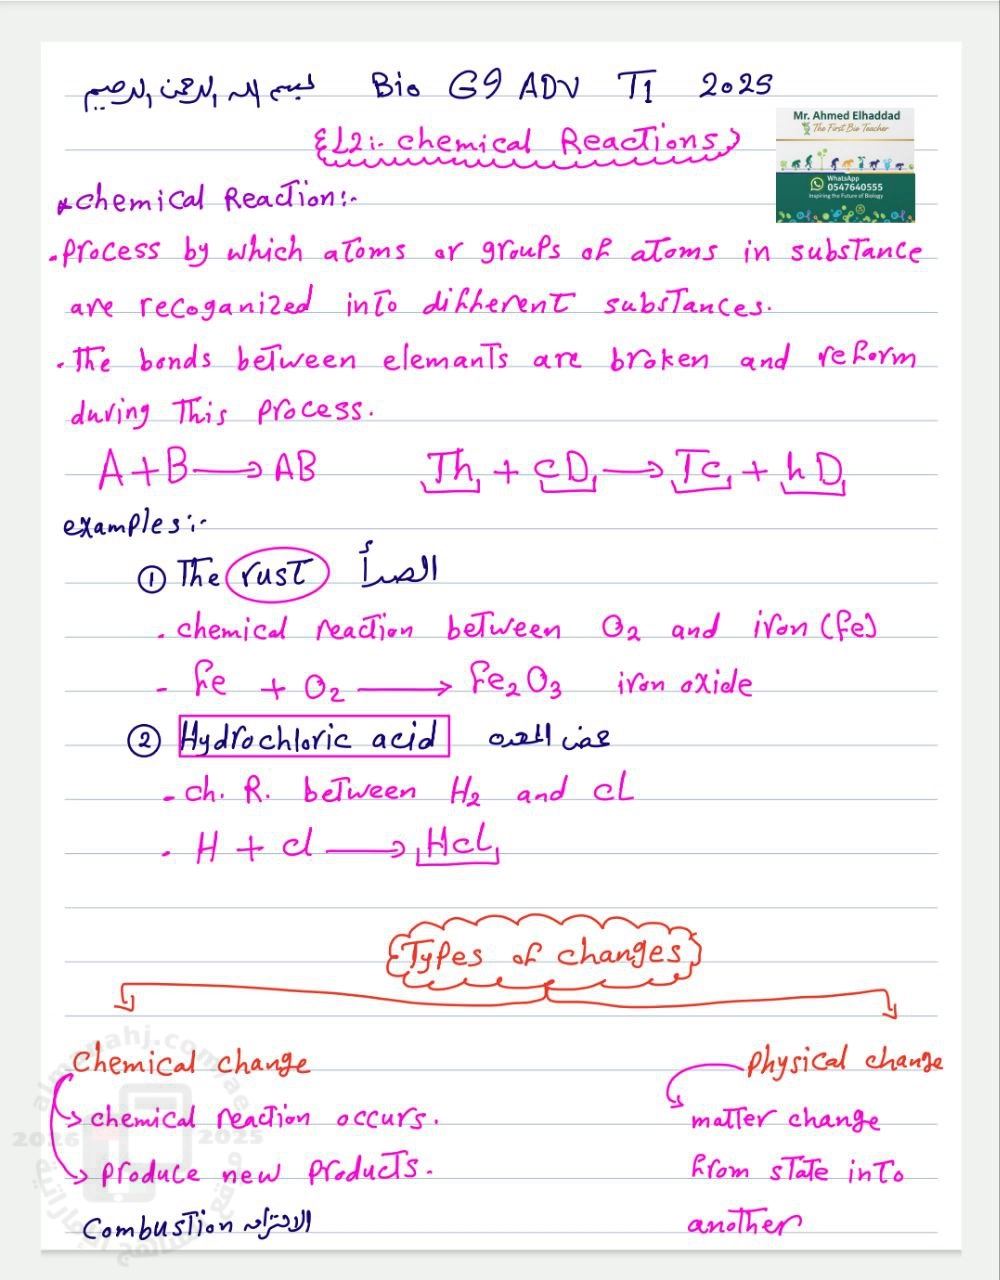 بسم الله الرحمن الرحيم Bio G9 ADV T1 2025
Mr. Ahmed Elhaddad
The First Bio Teacher
WhatsApp
0547640555
Inspiring the Future of Biology
L2:- chemical Reactions
*chemical Reaction:-
. process by which atoms or groups of atoms in substance
are recoganized into different substances.
. The bonds between elemants are broken and reform
during This process.
A + B → AB Th + cD → Tc + hD
examples:-
① The rust الصدأ
. chemical reaction between O₂ and iron (fe)
- fe + O₂ → Fe₂O₃ iron oxide
② Hydrochloric acid حمض المعده
- ch. R. between H₂ and cL
. H + cl → HcL
Types of changes
Chemical change
chemical reaction occurs.
produce new products.
Combustion الاحتراق
physical change
matter change
from state into
another
almanahj.com/ae
2026 2025